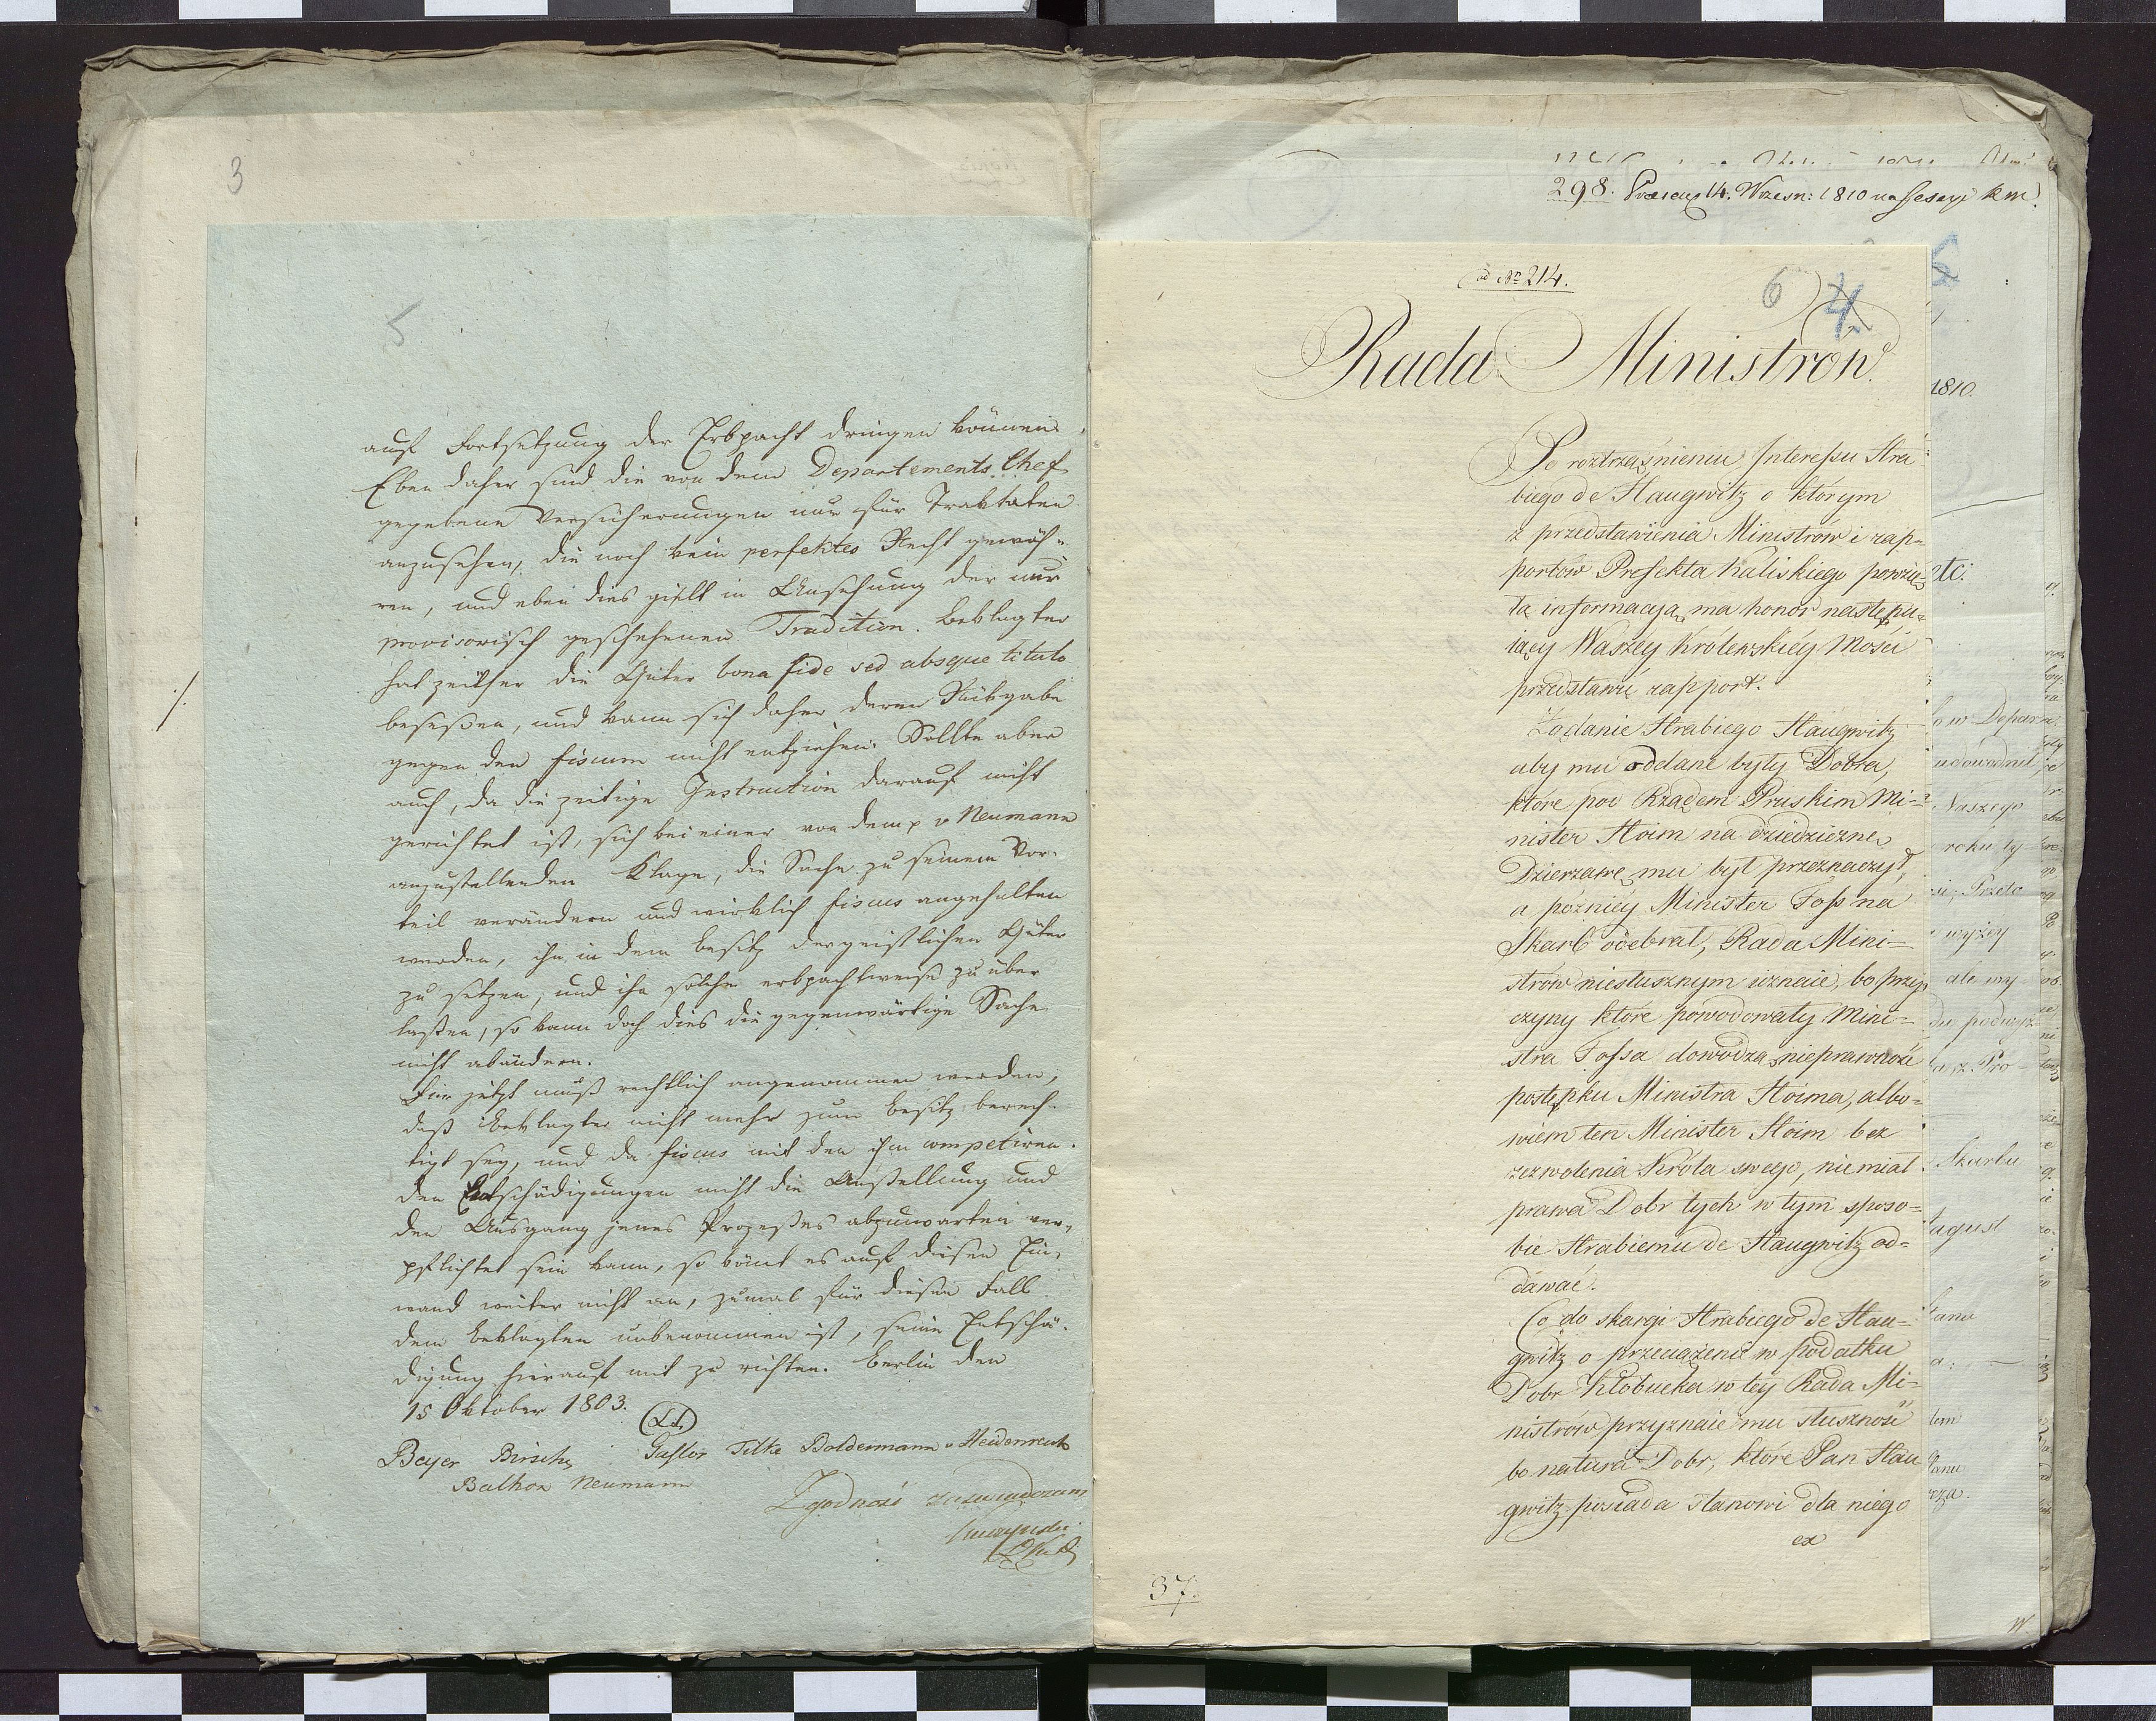 3
5
auf Fortsetzung der Erbpacht dringen können.
Eben daher sind die von dem Departements Chef
gegebene Versicherungen nur für Traktaten
anzusehen, die noch kein perfektes Recht gewäh-
ren, und eben dies gielt in Ansehung der nur
provisorisch geschehenen Tradition. Beklagter
hat zeither die Güter bona fide sed absque titulo
beseßen, und kann sich daher deren Rükgabe
gegen den fiscum nicht entziehen. Sollte aber
auch, da die zeitige Instruction darauf nicht
gerichtet ist, sich bei einer von dem p v Neumann
anzustellenden Klage, die Sache zu seinem Vor-
teil verändern und wirklich fiscus angehalten
werden, ihn in dem Besitz der geistlichen Güter
zu setzen, und ihn solche erbpachtweise zu über
laßen, so kann doch dies die gegenwärtige Sache
nicht abändern.
Für jetzt muß rechtlich angenommen werden,
daß Beklagter nicht mehr zum Besitz berech-
tigt sey, und da fiscus mit den ihm competiren-
den Entschädigungen nicht die Anstellung und
den Ausgang jenes Prozeßes abzuwarten ver-
pflichtet sein kann, so kömt es auf diesen Ein-
wand weiter nicht an, zumal für diesen Fall
dem Beklagten unbenommen ist, seine Entschä-
digung hierauf mit zu richten. Berlin den
15 Oktober 1803.
(LS)
Beyer Goßlor Tilke Boldermann v Heidenreich
Balhorn Neumann
Zgodność zaświadczam
298. 14. Wrzesn: 1810 na Sessyi R M.
ad Nr 214.
6 4
Rada Ministrow
Po roztrząśnieniu Interessu Hra
biego de Haugwitz o którym
z przedstawienia Ministrów i rap=
portów Prefekta Kaliskiego powzię=
ła informacyą, ma honor nastę̨pu=
iący Waszéy Królewskiéy Mości
przedstawić rapport.
Ządanie Hrabiego Haugwitz
aby mu oddane były Dobra,
które pod Rządem Pruskim Mi=
nister Hoim na dziedziczne
Dzierzawę mu był przeznaczył,
a pózniey Minister Foss na
Skarb odebrał, Rada Mini=
strow niesłusznym uznaie, bo przy
czyny które powodowały Mini=
stra Fossa dowodzą nieprawność
postępku Ministra Hoima, albo=
wiem ten Minister Hoim bez
zezwolenia Króla swego, nie miał
prawa Dobr tych w tym sposo=
bie Hrabiemu de Haugwitz od=
dawać.
Co do skargi Hrabiego de Hau=
gwitz o przeciążenie w podatku
Dobr Kłobucka w tey Rada Mi=
nistrów przyznaie mu słuszność
bo natura Dobr, które Pan Hau
gwitz posiada stanowi dla niego
ex
37.
1810.
udowodnił
Naszego
roku ty
wyżey
ale wy
Skarbu
August